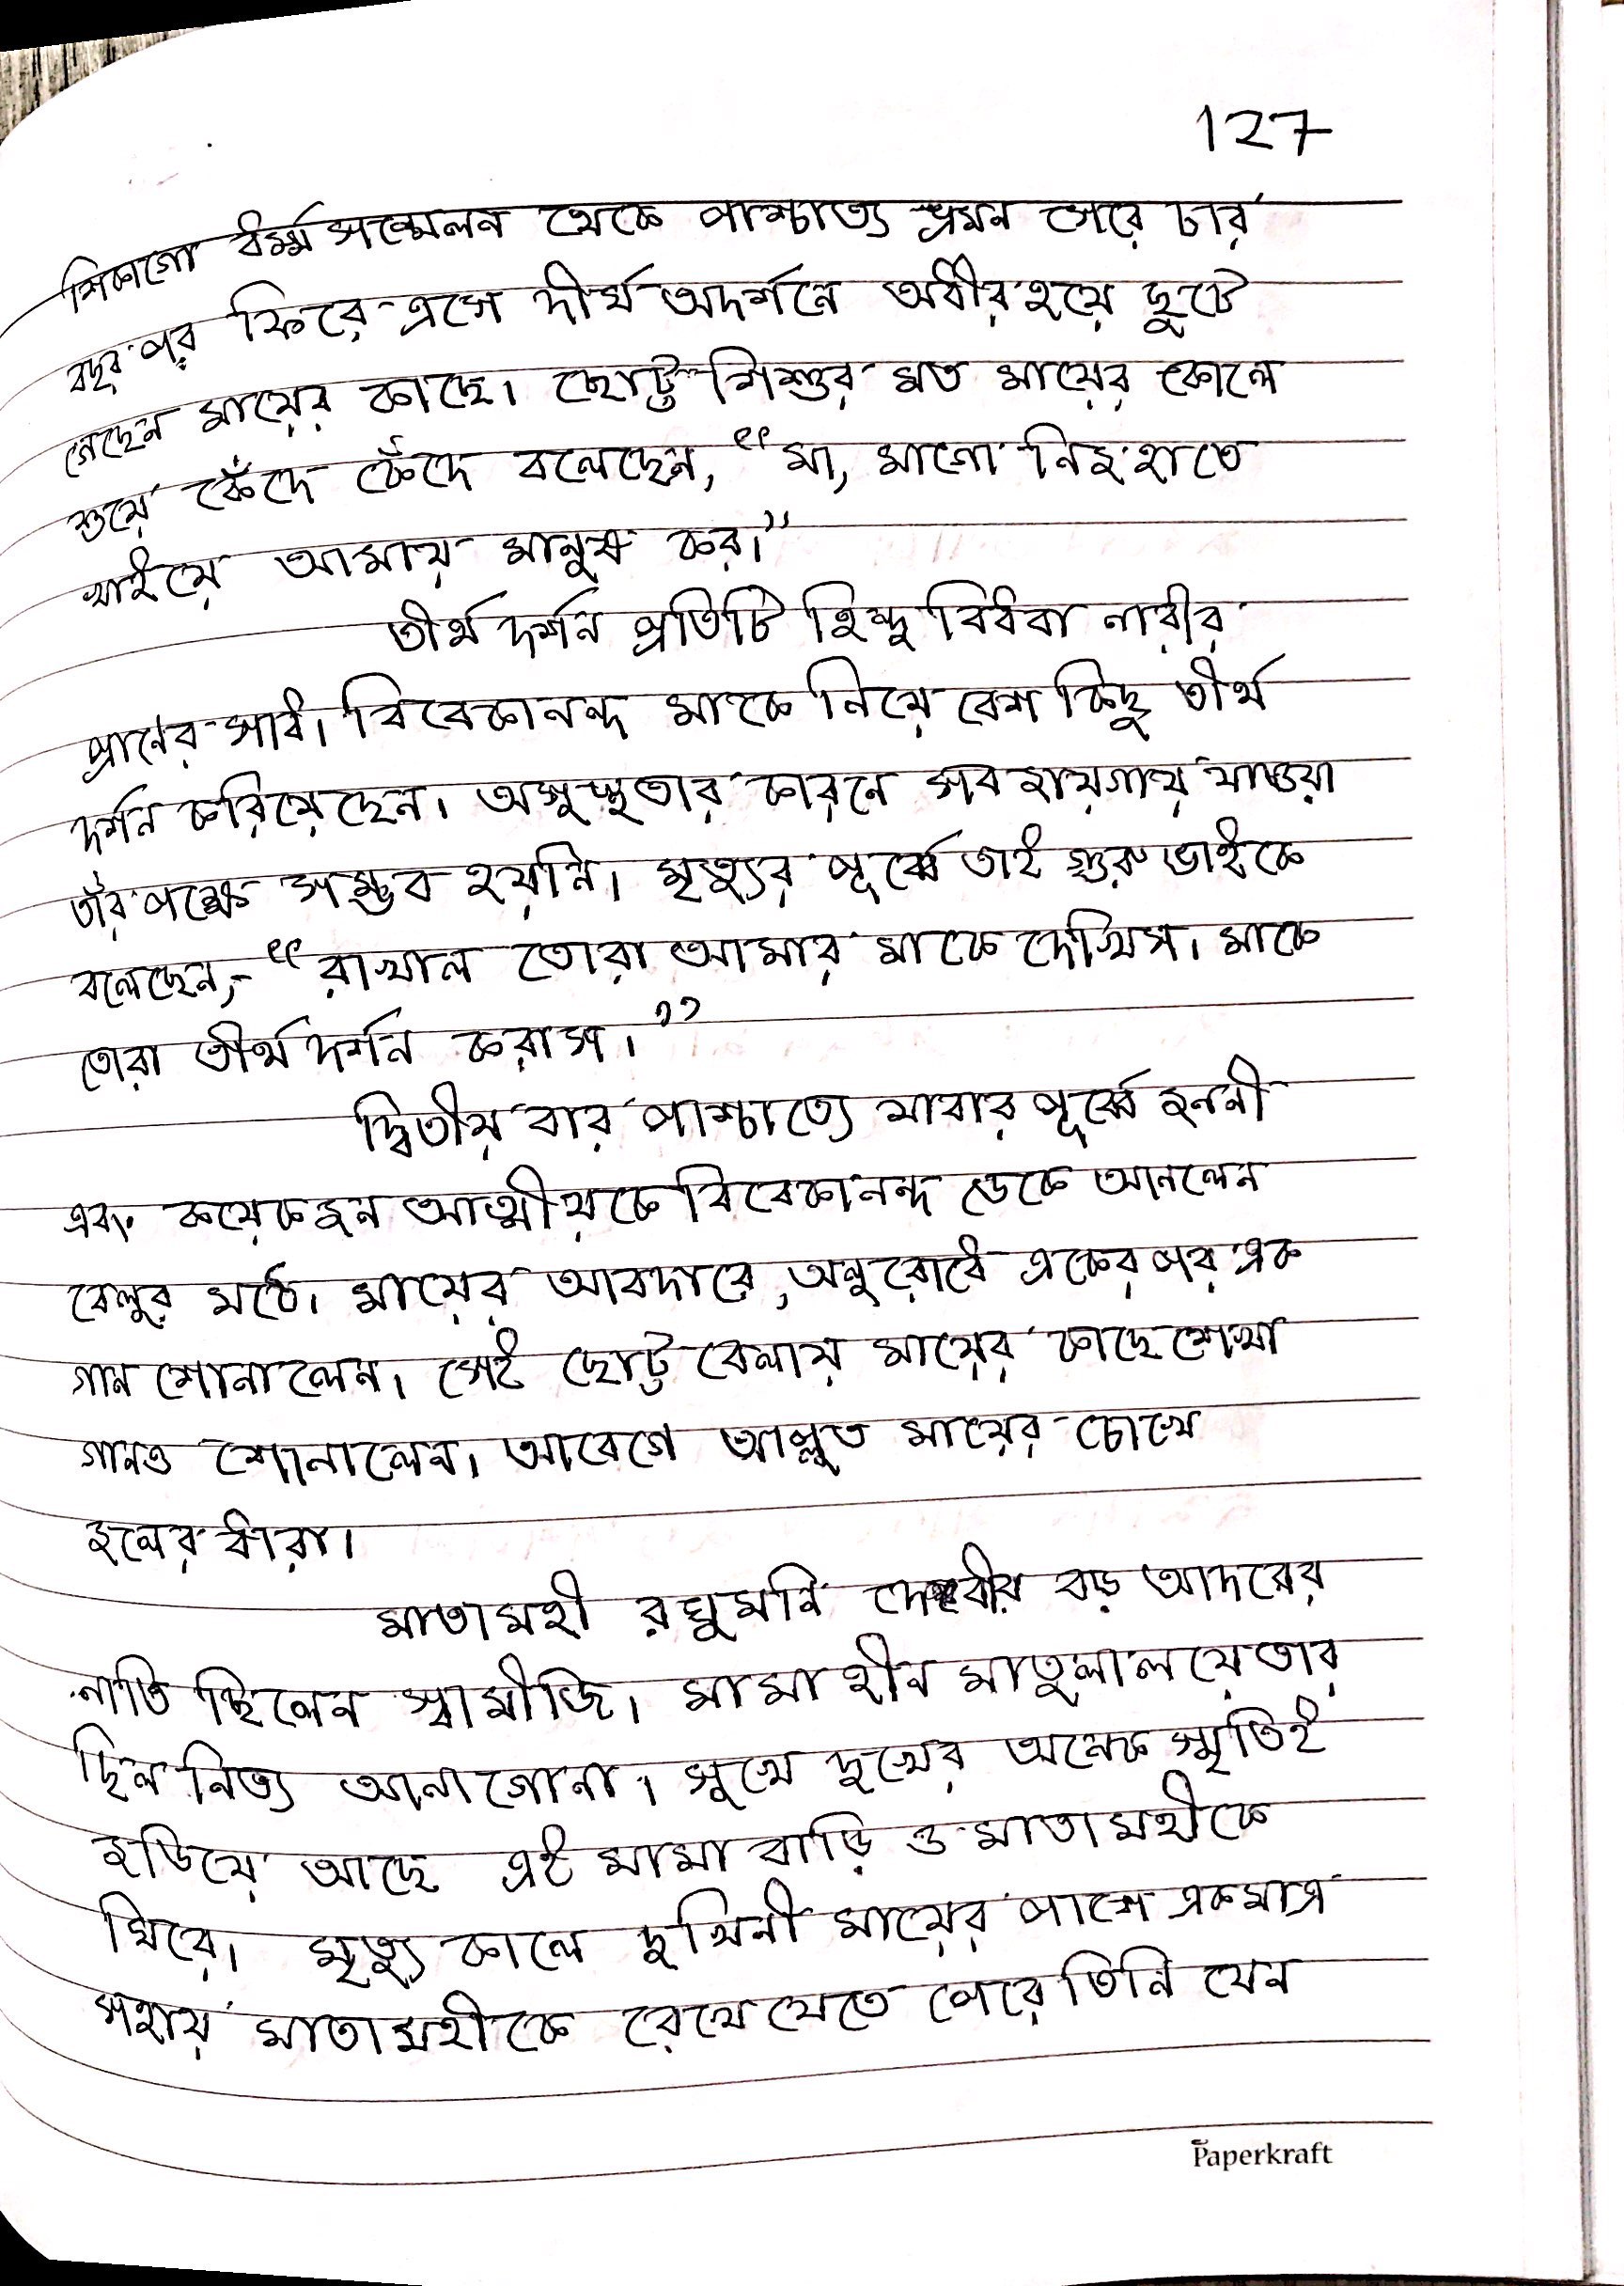 127
শিকাগো ধর্ম্মসম্মেলন থেকে পাশ্চাত্য ভ্রমন সেরে চার
বছর পর ফিরে এসে দীর্ঘ অদর্শনে অধীর হয়ে ছুটে
গেছেন মায়ের কাছে। ছোট্ট শিশুর মত মায়ের কোলে
শুয়ে কেঁদে কেঁদে বলেছেন, “মা, মাগো নিজ হাতে
খাইয়ে আমায় মানুষ কর।”
তীর্থ দর্শন প্রতিটি হিন্দু বিধবা নারীর
প্রাণের সাধ। বিবেকানন্দ মাকে নিয়ে বেশ কিছু তীর্থ
দর্শন করিয়েছেন। অসুস্থতার কারনে সব জায়গায় যাওয়া
তাঁর পক্ষে সম্ভব হয়নি। মৃত্যুর পূর্ব্বে তাই গুরু ভাইকে
বলেছেন,- “রাখাল তোরা আমার মাকে দেখিস। মাকে
তোরা তীর্থ দর্শন করাস।”
দ্বিতীয় বার পাশ্চাত্যে যাবার পূর্ব্বে জননী
এবং কয়েকজন আত্মীয়কে বিবেকানন্দ ডেকে আনলেন
বেলুর মঠে। মায়ের আবদারে, অনুরোধে একের পর এক
গান শোনালেন। সেই ছোট্ট বেলায় মায়ের কাছে শেখা
গানও শোনালেন। আবেগে আপ্লুত মায়ের চোখে
জলের ধারা।
মাতামহী রঘুমনি দেবীর বড় আদরের
নাতি ছিলেন স্বামীজি। মামাহীন মাতুলালয়ে তার
ছিল নিত্য আনাগোনা। সুখে দুখের অনেক স্মৃতিই
জডিয়ে আছে এই মামা বাড়ি ও মাতামহীকে
ঘিরে। মৃত্যু কালে দুখিনী মায়ের পাশে একমাত্র
সহায় মাতামহীকে রেখে যেতে পেরে তিনি যেন
Paperkraft